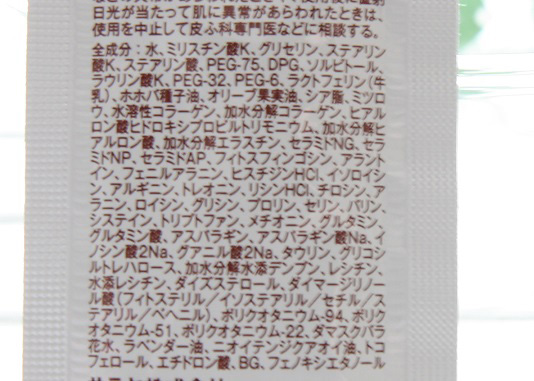 日光が当たって肌に異常があらわれたときは、
使用を中止して皮ふ科専門医などに相談する。
全成分：水、ミリスチン酸K、グリセリン、ステアリン
酸K、ステアリン酸、PEG-75、DPG、ソルビトール、
ラウリン酸K、PEG-32、PEG-6、ラクトフェリン（牛
乳）、ホホバ種子油、オリーブ果実油、シア脂、ミツロ
ウ、水溶性コラーゲン、加水分解コラーゲン、ヒアル
ロン酸ヒドロキシプロピルトリモニウム、加水分解ヒ
アルロン酸、加水分解エラスチン、セラミドNG、セラ
ミドNP、セラミドAP、フィトスフィンゴシン、アラント
イン、フェニルアラニン、ヒスチジンHCl、イソロイシ
ン、アルギニン、トレオニン、リシンHCl、チロシン、ア
ラニン、ロイシン、グリシン、プロリン、セリン、バリン、
システイン、トリプトファン、メチオニン、グルタミン、
グルタミン酸、アスパラギン、アスパラギン酸Na、イ
ノシン酸2Na、グアニル酸2Na、タウリン、グリコシ
ルトレハロース、加水分解水添デンプン、レシチン、
水添レシチン、ダイズステロール、ダイマージリノー
ル酸（フィトステリル／イソステアリル／セチル／ス
テアリル／ベヘニル）、ポリクオタニウム-94、ポリク
オタニウム-51、ポリクオタニウム-22、ダマスクバラ
花水、ラベンダー油、ニオイテンジクアオイ油、トコ
フェロール、エチドロン酸、BG、フェノキシエタノール